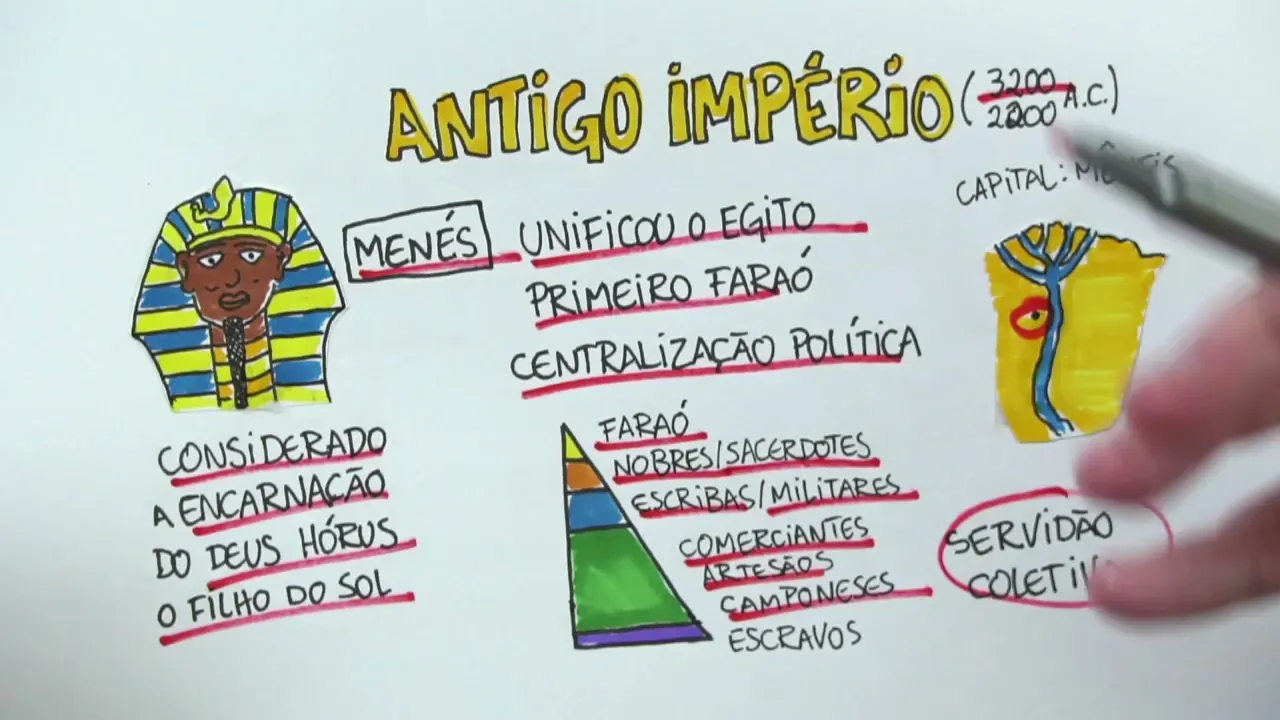 ANTIGO IMPÉRIO (3200
2200 A.C.)
CAPITAL:
MENÉS
UNIFICOU O EGITO
PRIMEIRO FARAÓ
CENTRALIZAÇÃO POLÍTICA
CONSIDERADO
A ENCARNAÇÃO
DO DEUS HÓRUS
O FILHO DO SOL
FARAÓ
NOBRES/SACERDOTES
ESCRIBAS/MILITARES
COMERCIANTES
ARTESÃOS
CAMPONESES
ESCRAVOS
SERVIDÃO